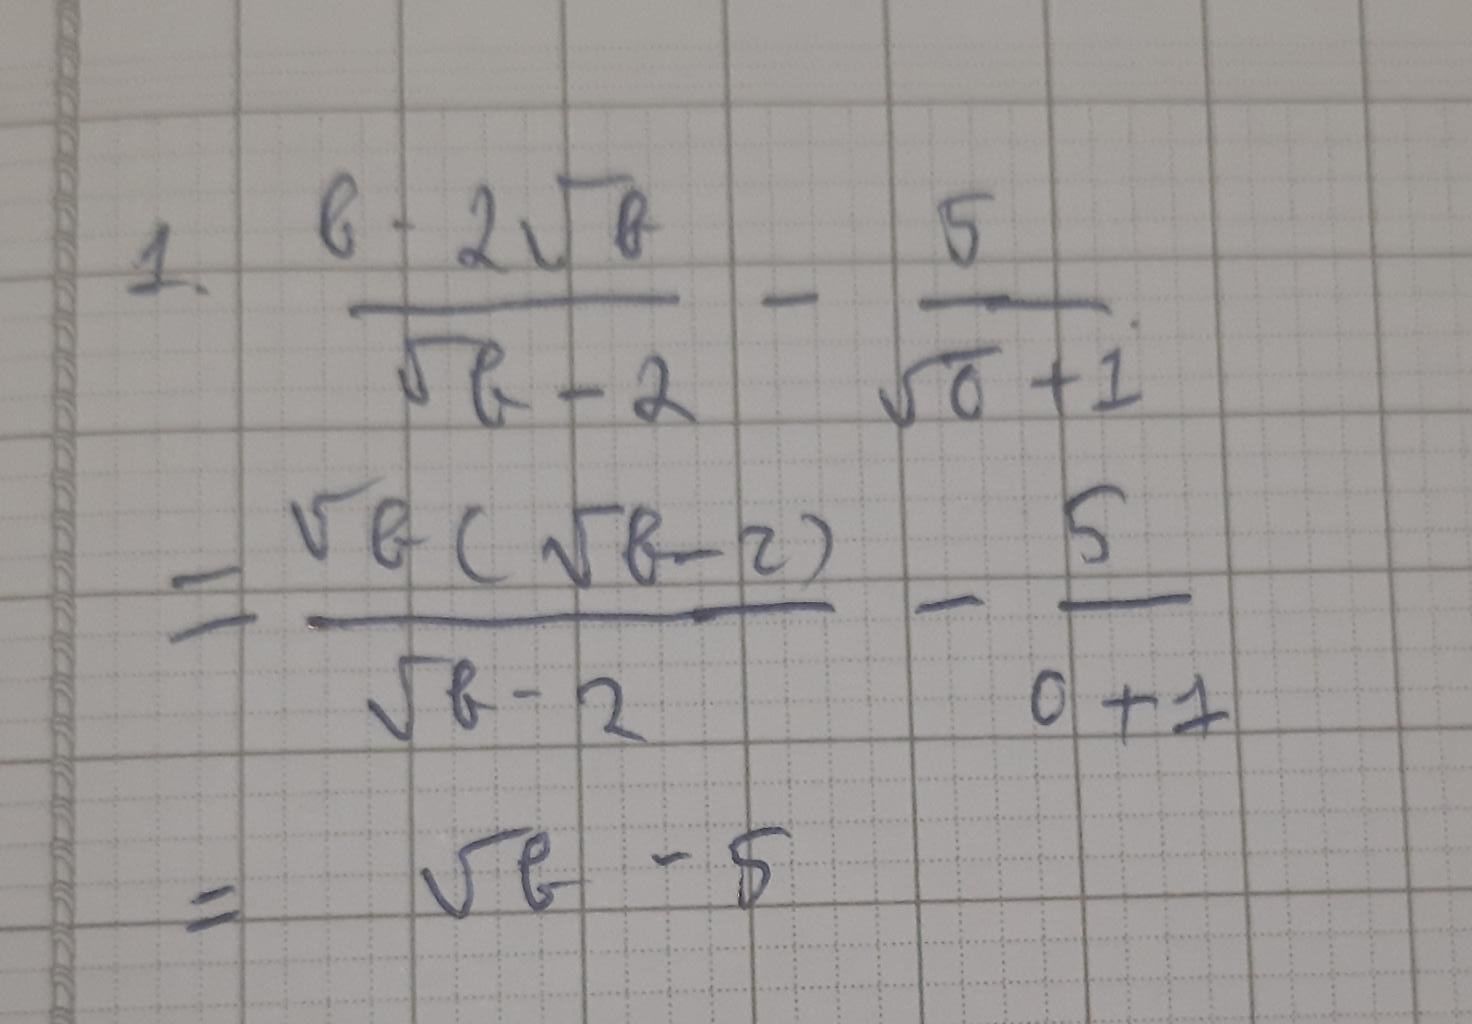 1. (b - 2√b)/(√b - 2) - 5/(√0 + 1)
= (√b(√b - 2))/(√b - 2) - 5/(0 + 1)
= √b - 5